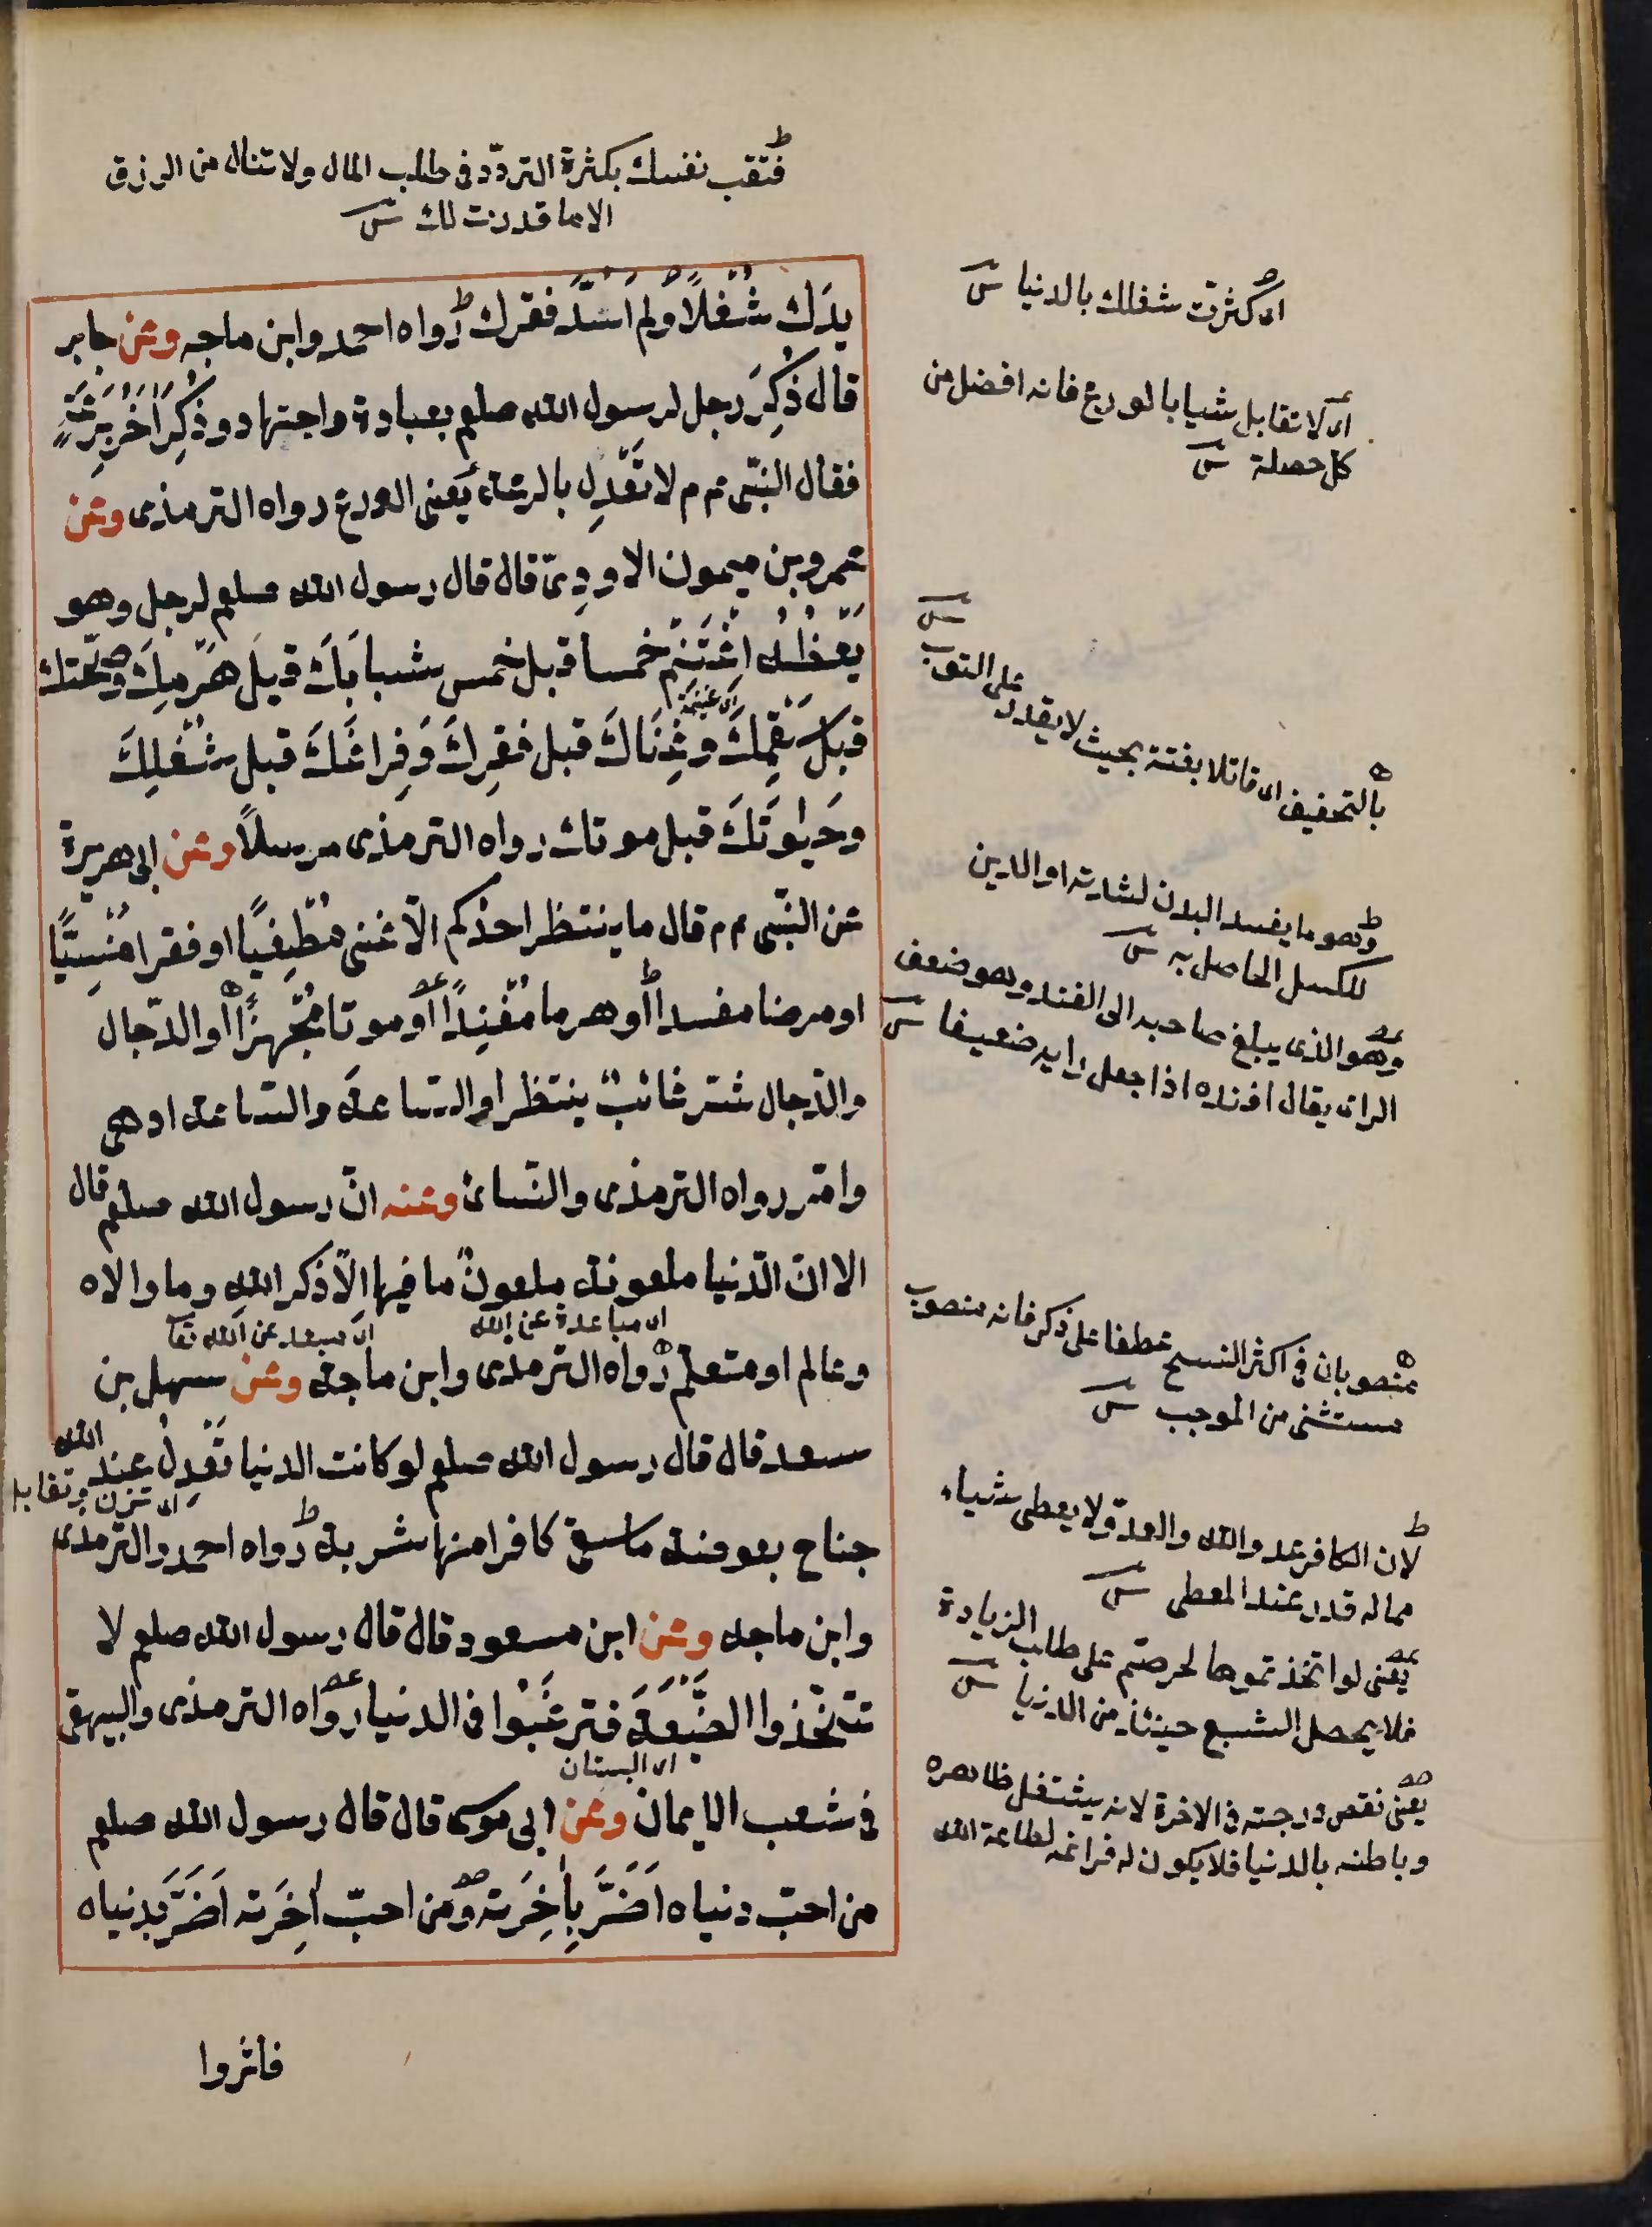 فتتعب نفسك بكثرة التردّد فى طلب المال ولا تنال من الرزق
الا ما قدرت لك
يدَك شُغلاً ولم اَسُدَّ فقرك رواه احمد وابن ماجه وعن جابر
قال ذُكِرَ رجل لرسول الله صلعم بعبادة واجتهاد وذُكِرَ اٰخَرُ بِرِعَةٍ
فقال النبى عم م لا تَعْدِل بالرعة يَعنى الورع رواه الترمذى وعن
عمرو بن ميمون الاودِىّ قال قال رسول الله صلعم لرجل وهو
يَعِظُه اِغْتَنِمْ خمسا قبل خمس شبابَكَ قبل هَرَمِكَ وصحّتك
قبل سَقَمِكَ وغِنَاكَ قبل فقرِكَ وَفِراغَكَ قبل شُغلِكَ
اى غنيمة
وحَيٰوتَكَ قبل موتك رواه الترمذى مرسلاً وعن ابى هريرة
عن النبّى عم م قال ما ينتظر احدكم الاّ غنى مُطْغِيًا او فقرا مُنْسِيًا
او مرضا مفسدا او هرما مُفْنِدًا او موتا مُجْهِزًا او الدّجال
والدّجال شر غائبٌ ينتظر او الساعةَ والساعة ادهى
وامّر رواه الترمذى والنسائ وعنه انّ رسول الله صلعم قال
الا انّ الدّنيا ملعونة ملعونٌ ما فيها الاّ ذكر اللهِ وما والاه
اى مباعدة عن الله
اى مبعد عن الله تعا
وعالم او متعلم رواه الترمذى وابن ماجة وعن سهل بن
سعد قال قال رسول الله صلعم لو كانت الدنيا تَعْدِلُ عند الله
اى تزن وتقابل
جناح بعوضة ما سقى كافرا منها شربة رواه احمد والترمذى
وابن ماجه وعن ابن مسعود قال قال رسول الله صلعم لا
تتخذوا الضَّيْعَةَ فترغَبُوا فى الدنيا رواه الترمذى والبيهقى
اى البستان
فى شعب الايمان وعن ابى موسى قال قال رسول الله صلعم
من احبّ دنياه اَضَرَّ بِاٰخِرَته ومن احبّ اٰخِرَته اَضَرَّ بدنياه
فاثروا
اى كثرت شغلك بالدنيا
اى لا تقابل شيا بالورع فانه افضل من
كل خصلة
بالتخفيف اى قاتلا بغتة بحيث لا يقدر على التوب
وهو ما يفسد البدن لشدته او الدين
للكسل الحاصل به
وهو الذى يبلغ صاحبه الى الفند وهو ضعف
الراى يقال افنده اذا جعل رايه ضعيفا
منصوبان فى اكثر النسخ عطفا على ذكر فانه منصوب
مستثنى من الموجب
لان الكافر عدو الله والعدوّ لا يعطى شياء
مما له قدر عند المعطى
يعنى لو اتخذتموها لحرصتم على طلب الزيادة
فلا يحصل الشبع حينئذ من الدنيا
يعنى نقص درجته فى الاخرة لانه يشتغل ظاهره
وباطنه بالدنيا فلا يكون له فراغه لطاعة الله